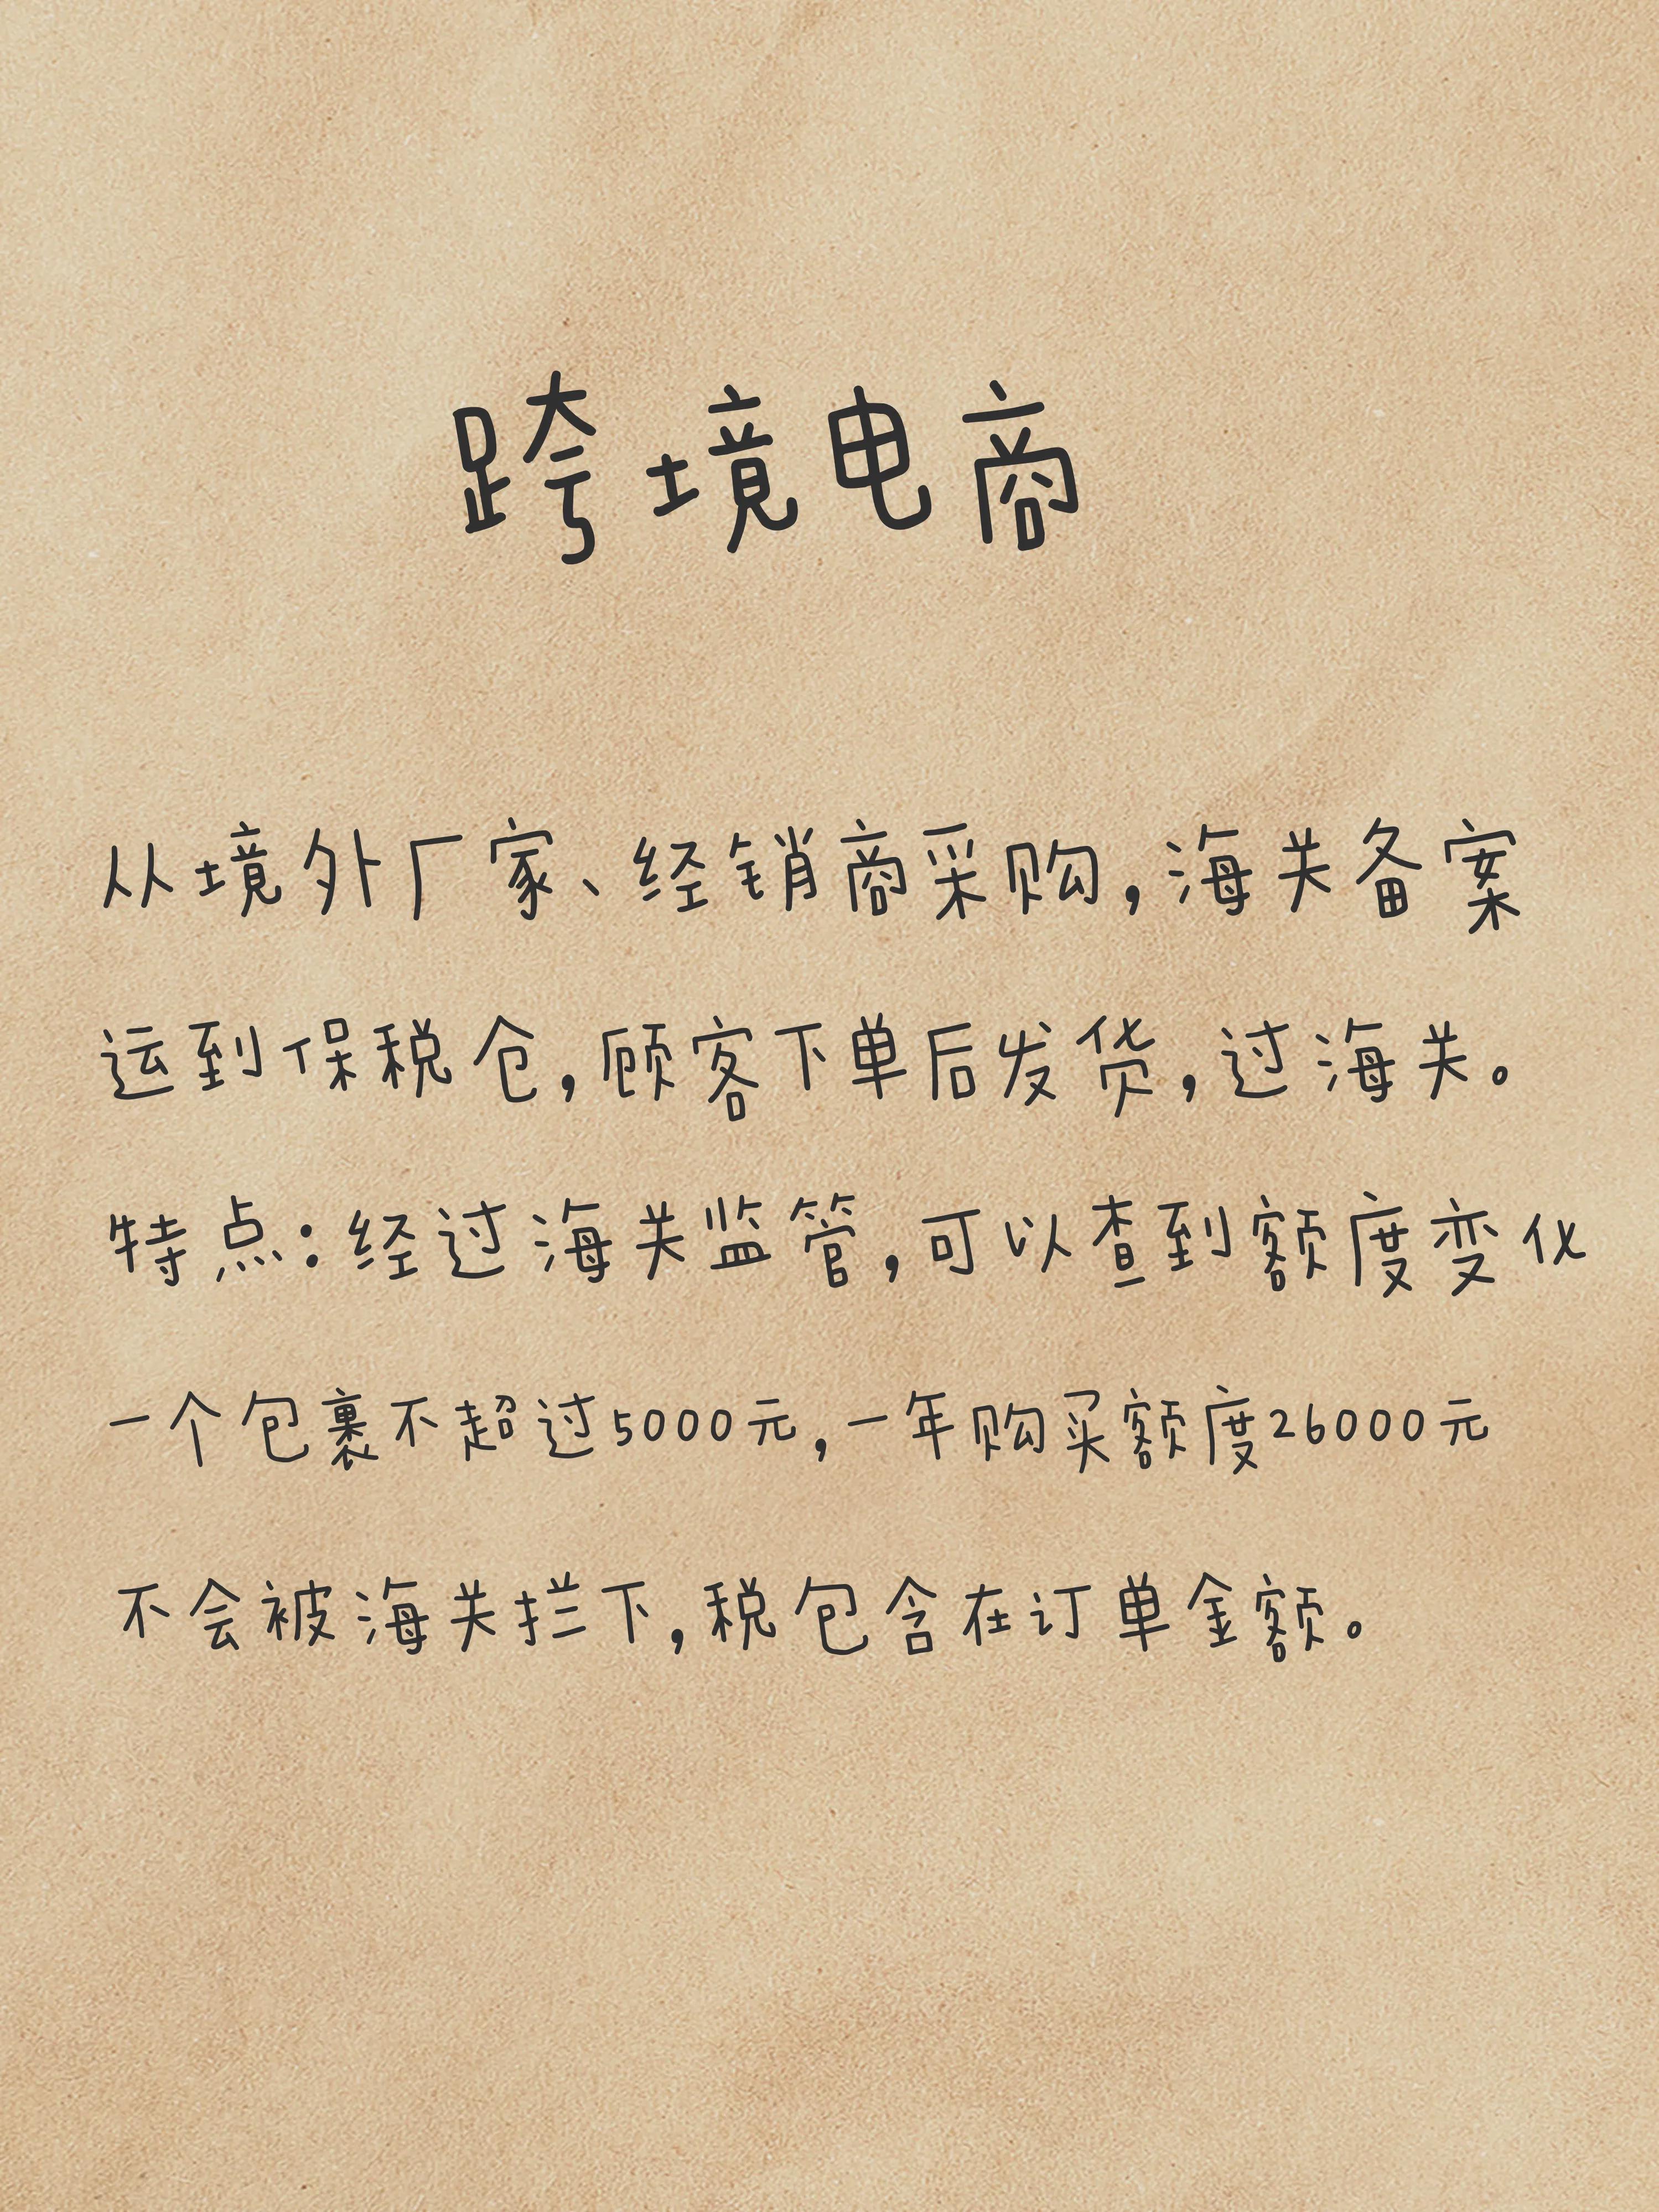 跨境电商
从境外厂家、经销商采购,海关备案
运到保税仓,顾客下单后发货,过海关。
特点:经过海关监管,可以查到额度变化
一个包裹不超过5000元,一年购买额度26000元
不会被海关拦下,税包含在订单金额。